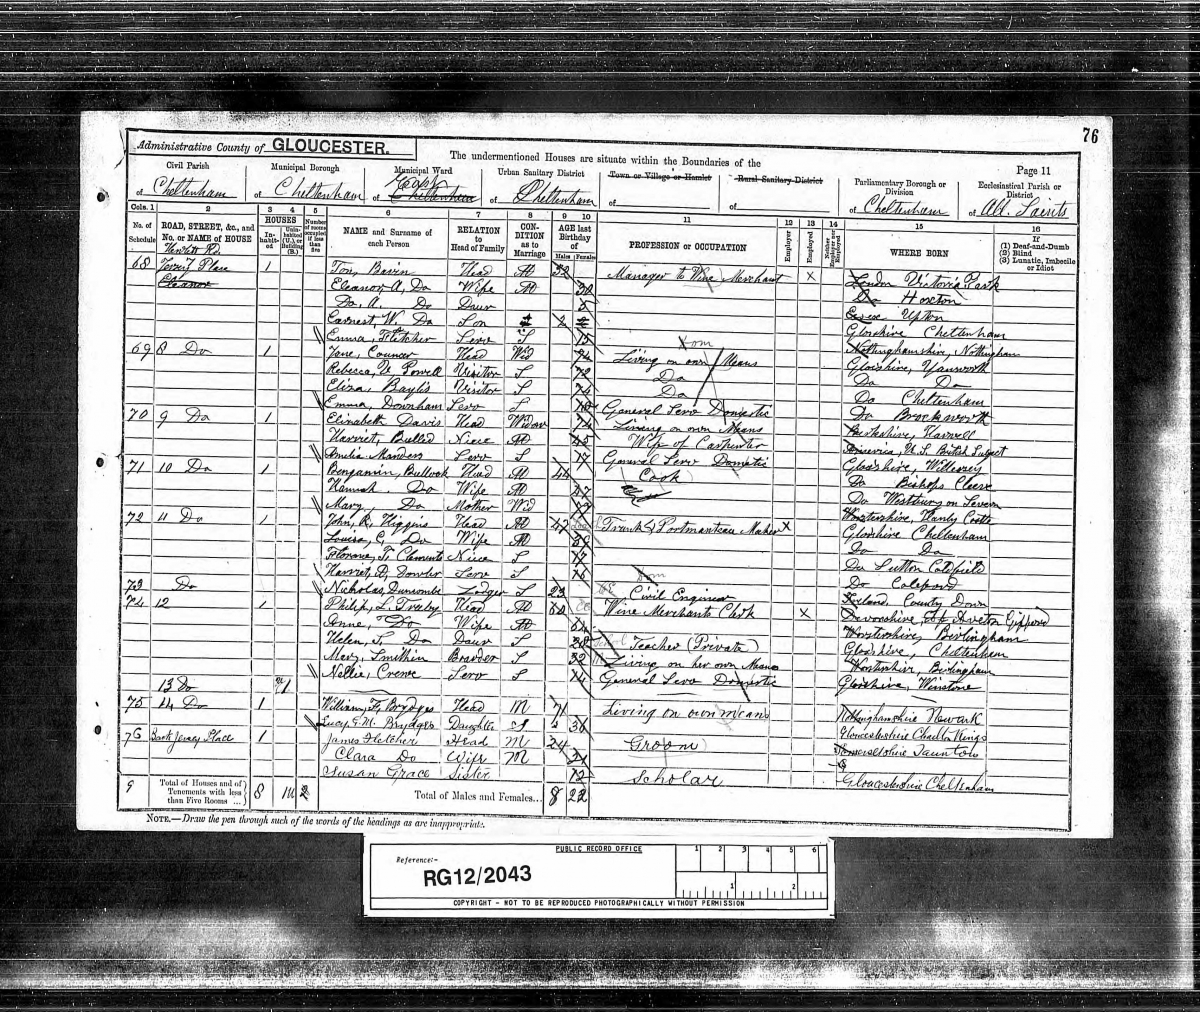 76
Administrative County of GLOUCESTER.
The undermentioned Houses are situate within the Boundaries of the
Page 11
Civil Parish
of Cheltenham
Municipal Borough
of Cheltenham
Municipal Ward
East
of Cheltenham
Urban Sanitary District
of Cheltenham
Town or Village or Hamlet
of
Rural Sanitary District
of
Parliamentary Borough or Division
of Cheltenham
Ecclesiastical Parish or District
of All Saints
Cols. 1 2 3 4 5 6 7 8 9 10 11 12 13 14 15 16
No. of Schedule
ROAD, STREET, &c., and No. or NAME of HOUSE
HOUSES
In-habit-ed
Unin-habited (U.), or Building (B.)
Number of rooms occupied if less than five
NAME and Surname of each Person
RELATION to Head of Family
CON-DITION as to Marriage
AGE last Birthday of
Males
Females
PROFESSION or OCCUPATION
Employer
Employed
Neither Employer nor Employed
WHERE BORN
If
(1) Deaf-and-Dumb
(2) Blind
(3) Lunatic, Imbecile or Idiot
68 Place 1 Head M 32 Manager to Wine Merchant X London Victoria Park
Eleanor Eleanor A, Do Wife M 30 Do Hoxton
Do. A. Do Daur 5 Essex Upton
Earnest, W. Do Son 2 Gloshire Cheltenham
Emma, Fletcher Serv S 15 Dom Nottinghamshire, Nottingham
69 8 Do 1 Jane, Head Wid Living on own Means Gloshire,
Rebecca, Powell Visitor S 72 Do Do Do
Eliza, Baylis Visitor S 74 Do Do Cheltenham
Emma, Downham Serv S General Serv Domestic Do Brockworth
70 9 Do 1 Elizabeth Davis Head Widow 74 Living on own Means Berkshire, Harwell
Harriet, Niece M 45 Wife of Carpenter America, U.S. British Subject
Amelia Manders Serv S 17 General Serv Domestic Gloshire, Willersey
71 10 Do 1 Bengamin, Bullock Head M 44 Cook Do Bishops Cleeve
Hannah Do Wife M Do Westbury on Severn
Mary, Do Mother Wid 77 Worstershire, Hanley Castle
72 11 Do 1 John, R, Higgins Head M 42 Trunk & Portmanteau Maker X Gloshire Cheltenham
Louisa, C, Do Wife M 39 Do Do
Florance, T, Clements Niece S 17 Do Sutton Coldfield
Harriet, Serv S 16 Dom Do Coleford
73 Do Nicholas, Duncombe Lodger S 23 Civil Engineer Ireland, County Down
74 12 1 Philip, L. Head M 60 Wine Merchants Clerk X Devonshire, Aveton Gifford
Anne, Do Wife M Worstershire, Birlingham
Helen, S, Do Daur S 28 Teacher (Private) Gloshire, Cheltenham
Mary, Smithin Boarder S 32 Living on her own Means Worstershire, Birlingham
Nellie, Crewe Serv S 14 General Serv Domestic Gloshire, Winstone
13 Do 1
75 14 Do 1 William, F, Brydges Head M 71 Living on own means Nottinghamshire Newark
Lucy G.M. Brydges Daughter S 36 Gloucestershire Charlton Kings
76 Back Jersey Place 1 James Fletcher Head M 24 Groom Somersetshire Taunton
Clara Do Wife M 21
Susan Grace Sister 12 Scholar Gloucestershire Cheltenham
9 Total of Houses and of Tenements with less than Five Rooms ... 8 1U 2 Total of Males and Females... 8 22
NOTE.—Draw the pen through such of the words of the headings as are inappropriate.
PUBLIC RECORD OFFICE
Reference:-
RG12/2043
1 2 3 4 5 6
1 2
COPYRIGHT - NOT TO BE REPRODUCED PHOTOGRAPHICALLY WITHOUT PERMISSION